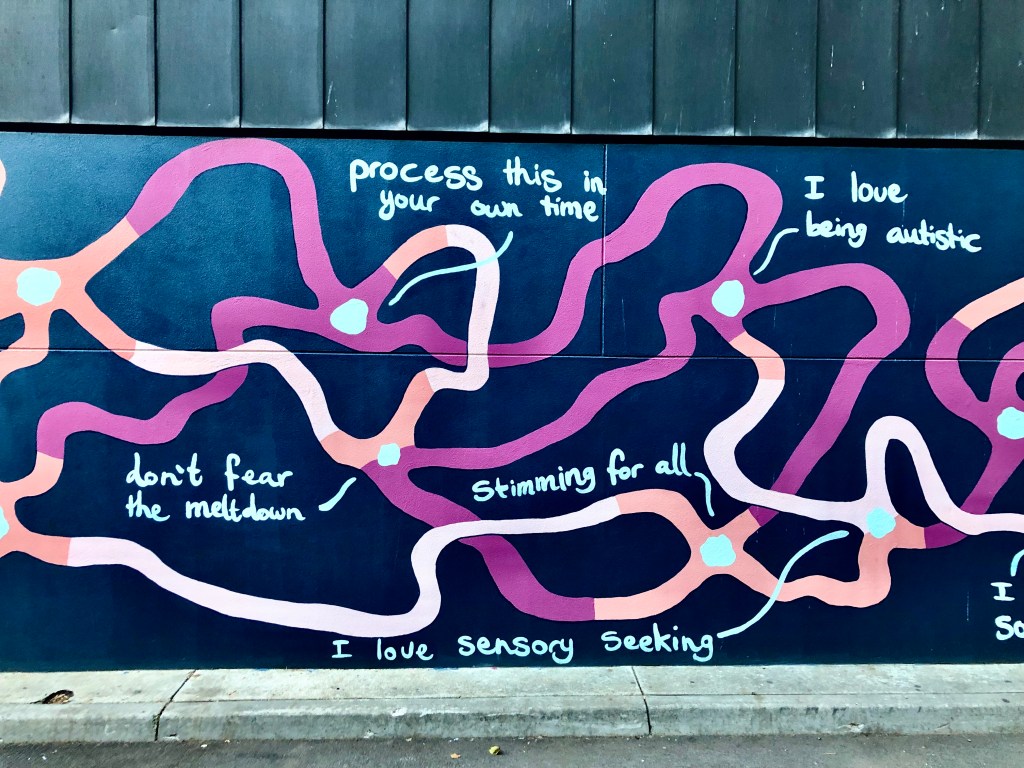 process this in
your own time
I love
being autistic
don't fear
the meltdown
Stimming for all
I love sensory seeking
I